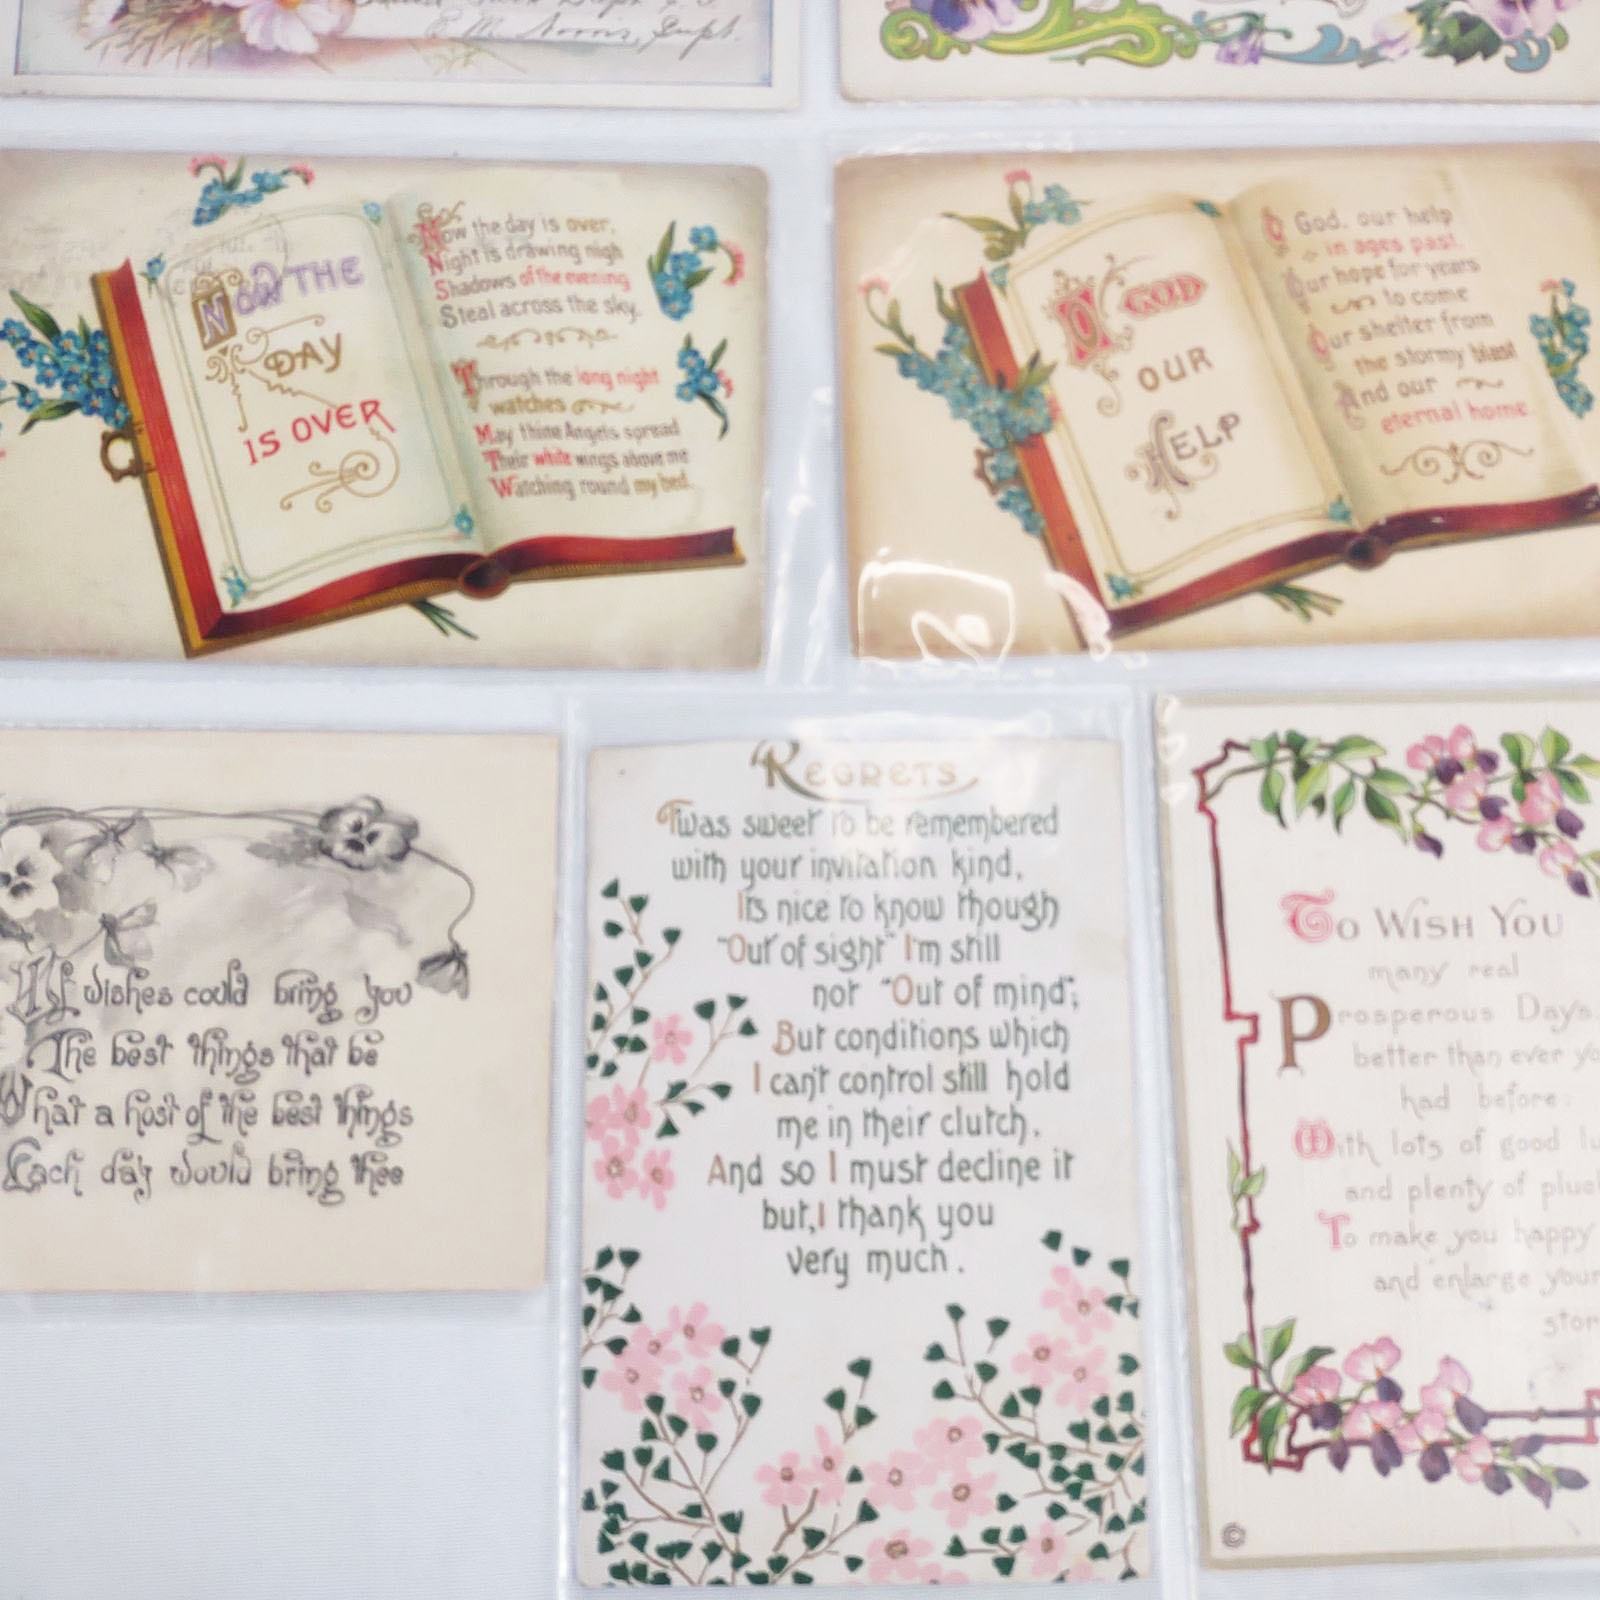 E. M. Norris, Supt.
NOW THE
DAY
IS OVER
Now the day is over,
Night is drawing nigh
Shadows of the evening
Steal across the sky.
Through the long night
watches
May thine Angels spread
Their white wings above me
Watching round my bed.
O GOD
OUR
HELP
O God, our help
in ages past,
Our hope for years
to come
Our shelter from
the stormy blast
And our
eternal home.
If wishes could bring you
The best things that be
What a host of the best things
Each day would bring thee
REGRETS
'Twas sweet to be remembered
with your invitation kind,
Its nice to know though
"Out of sight" I'm still
not "Out of mind";
But conditions which
I can't control still hold
me in their clutch.
And so I must decline it
but, I thank you
very much.
TO WISH YOU
many real
Prosperous Days.
better than ever
had before:
With lots of good
and plenty of
To make you happy
and enlarge your
©